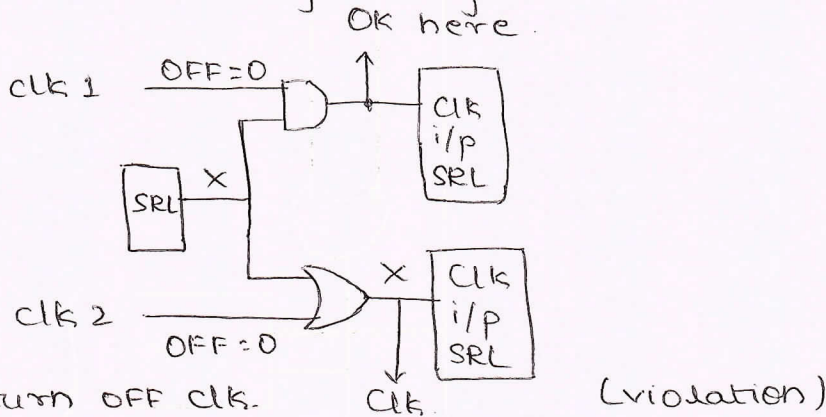 OK here.
Clk 1
OFF=0
Clk
i/p
SRL
SRL
X
X
Clk
i/p
SRL
Clk 2
OFF=0
urn OFF Clk.
Clk.
(violation)